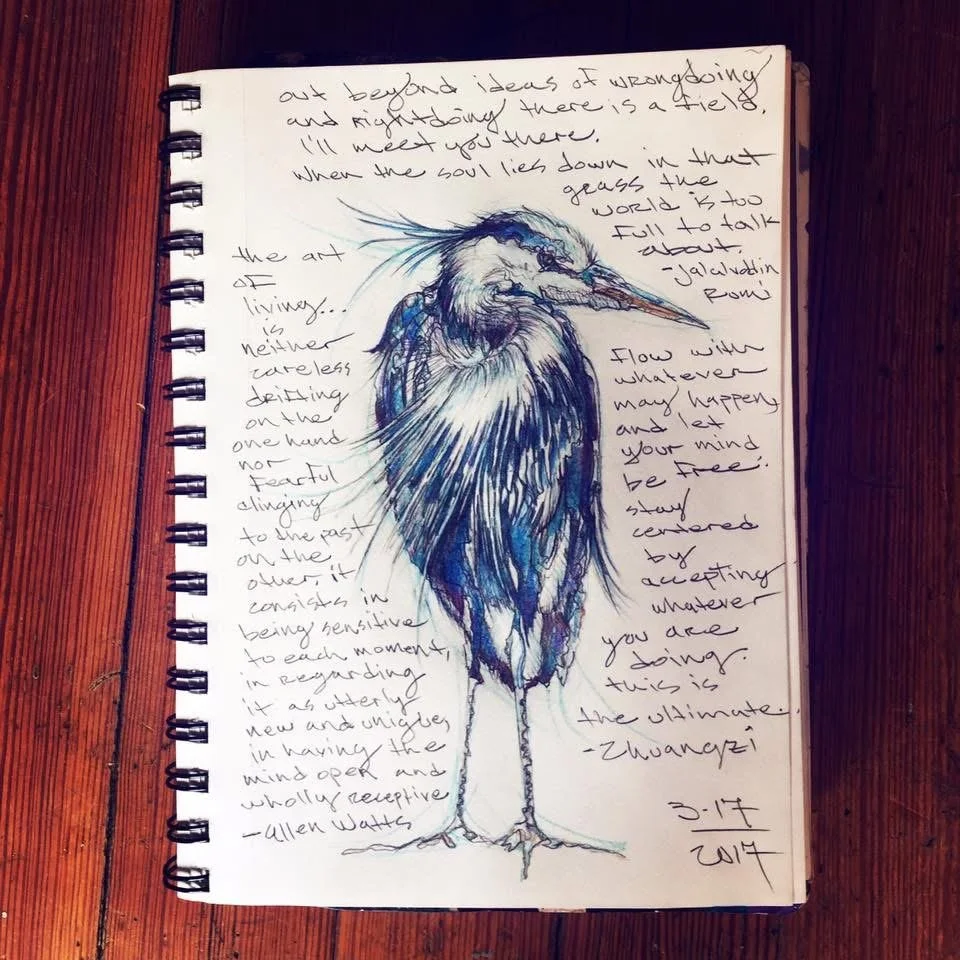 out beyond ideas of wrongdoing
and rightdoing there is a field.
I'll meet you there.
when the soul lies down in that
grass the
world is too
full to talk
about.
-Jalaluddin
Rumi
the art
of
living...
is
neither
careless
drifting
on the
one hand
nor
fearful
clinging
to the past
on the
other. it
consists in
being sensitive
to each moment,
in regarding
it as utterly
new and unique,
in having the
mind open and
wholly receptive
-Allen Watts
Flow with
whatever
may happen,
and let
your mind
be free.
stay
centered
by
accepting
whatever
you are
doing.
this is
the ultimate.
-Zhuangzi
3-17
2017